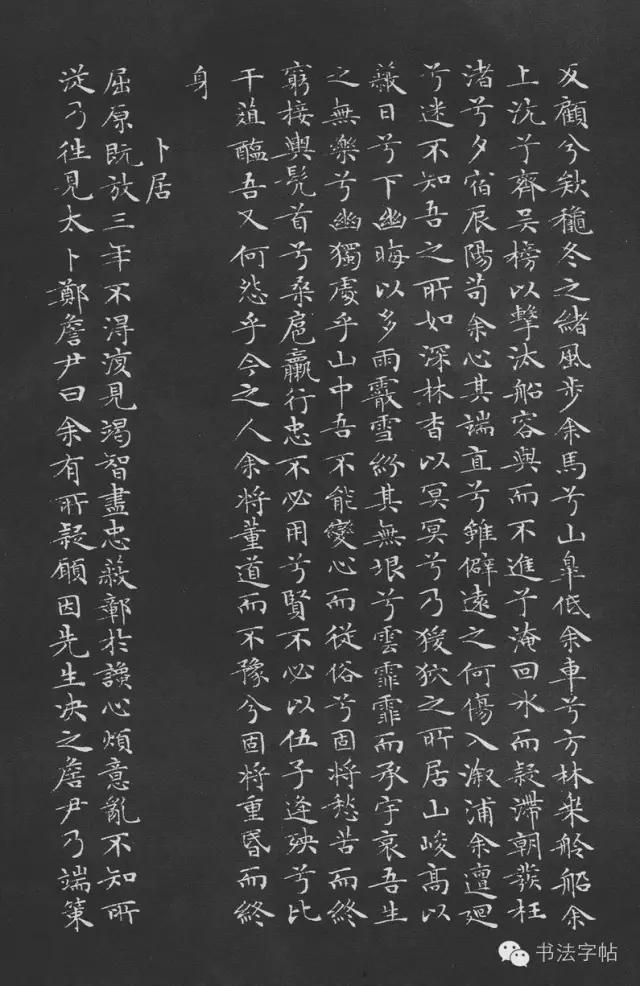 反顧兮欸穐冬之緒風步余馬兮山皐低余車兮方林乘舲船余
上沅兮齊吴榜以擊汰船容與而不進兮淹回水而疑滯朝發枉
渚兮夕宿辰陽苟余心其端直兮雖僻遠之何傷入溆浦余邅廻
兮迷不知吾之所如深林杳以冥冥兮乃猨狖之所居山峻高以
蔽日兮下幽晦以多雨霰雪紛其無垠兮雲霏霏而承宇哀吾生
之無樂兮幽獨處乎山中吾不能變心而從俗兮固將愁苦而終
窮接輿髡首兮桑扈臝行忠不必用兮賢不必以伍子逢殃兮比
干菹醢吾又何怨乎今之人余將董道而不豫兮固將重昏而終
身
卜居
屈原既放三年不得復見竭智盡忠蔽鄣於讒心煩意亂不知所
從乃往見太卜鄭詹尹曰余有所疑願因先生决之詹尹乃端策
书法字帖